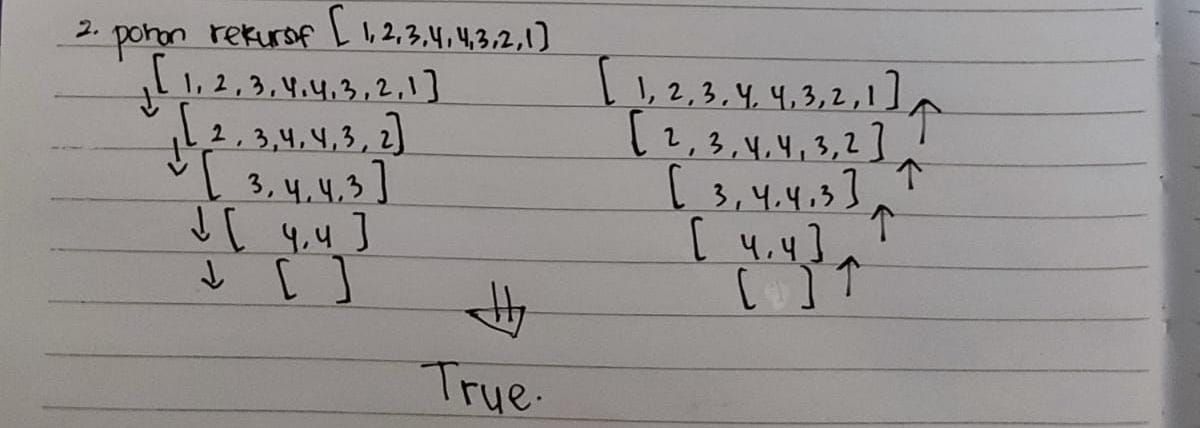 2. pohon rekursof [1,2,3,4,4,3,2,1]
[1,2,3,4,4,3,2,1] [1,2,3,4,4,3,2,1]
↓ [2,3,4,4,3,2] [2,3,4,4,3,2] ↑
↓ [3,4,4,3] [3,4,4,3] ↑
↓ [4,4] [4,4] ↑
↓ [ ] [ ] ↑
⇓
True.